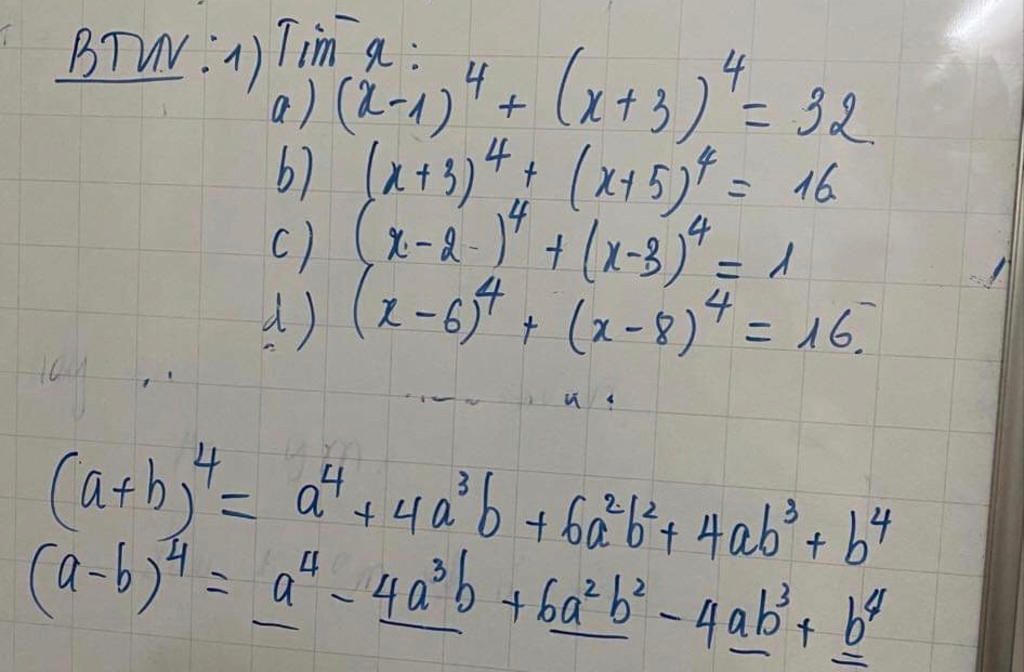 BTVN: 1) Tìm x:
a) (x-1)⁴ + (x+3)⁴ = 32
b) (x+3)⁴ + (x+5)⁴ = 16
c) (x-2)⁴ + (x-3)⁴ = 1
d) (x-6)⁴ + (x-8)⁴ = 16.
(a+b)⁴ = a⁴ + 4a³b + 6a²b² + 4ab³ + b⁴
(a-b)⁴ = a⁴ - 4a³b + 6a²b² - 4ab³ + b⁴